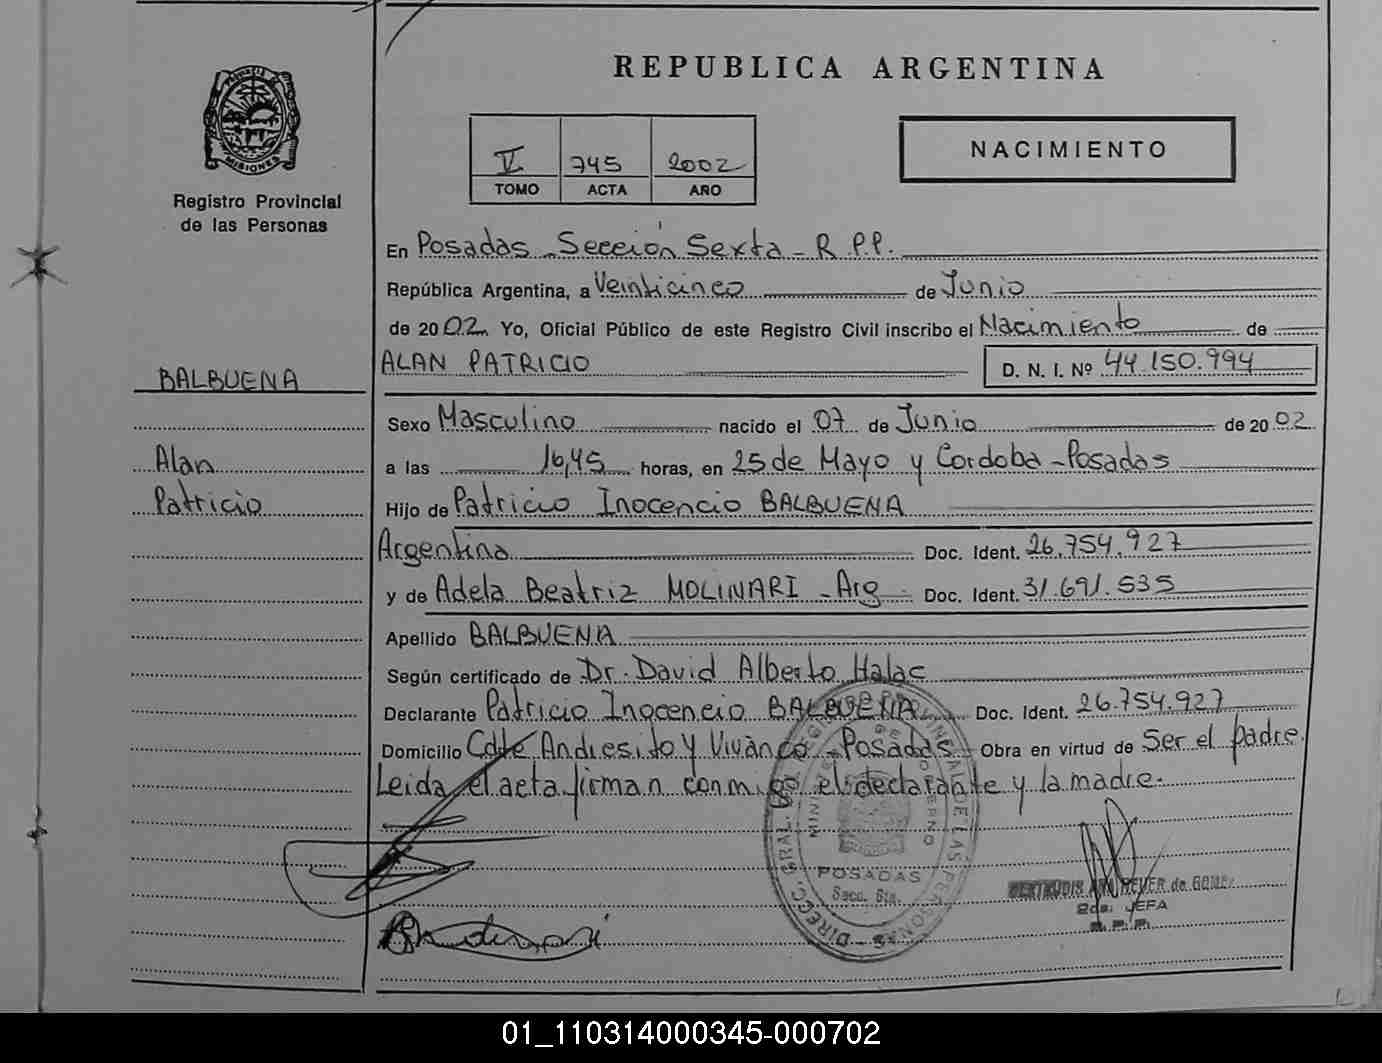 REPUBLICA ARGENTINA
MISIONES
Registro Provincial
de las Personas
V 745 2002
TOMO ACTA AÑO
NACIMIENTO
En Posadas - Sección Sexta - R.P.P.
República Argentina, a Veinticinco de Junio
de 2002. Yo, Oficial Público de este Registro Civil inscribo el Nacimiento de
ALAN PATRICIO D. N. I. Nº 44.150.994
BALBUENA
Sexo Masculino nacido el 07 de Junio de 2002
Alan
a las 16,45 horas, en 25 de Mayo y Cordoba - Posadas
Patricio
Hijo de Patricio Inocencio BALBUENA
Argentina Doc. Ident. 26.754.927
y de Adela Beatriz MOLINARI - Arg Doc. Ident. 31.691.535
Apellido BALBUENA
Según certificado de Dr. David Alberto Halac
Declarante Patricio Inocencio BALBUENA Doc. Ident. 26.754.927
Domicilio Cdte Andresito y Vivanco - Posadas - Obra en virtud de Ser el padre.
Leida el acta firman conmigo el declarante y la madre.
DIRECC. GRAL. DEL REGISTRO PROVINCIAL DE LAS PERSONAS
MINISTERIO DE GOBIERNO
POSADAS
Secc. 6ta.
JEFA
R.P.P.
01_110314000345-000702